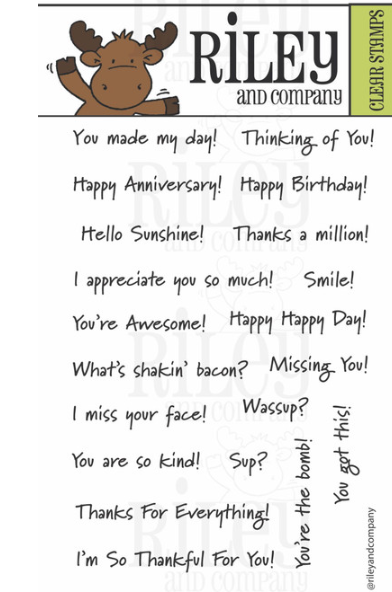 RiLEY
AND COMPANY
CLEAR STAMPS
You made my day! Thinking of You!
Happy Anniversary! Happy Birthday!
Hello Sunshine! Thanks a million!
I appreciate you so much! Smile!
You're Awesome! Happy Happy Day!
What's shakin' bacon? Missing You!
I miss your face! Wassup?
You got this!
You are so kind! Sup?
You're the bomb!
Thanks For Everything!
I'm So Thankful For You!
@rileyandcompany